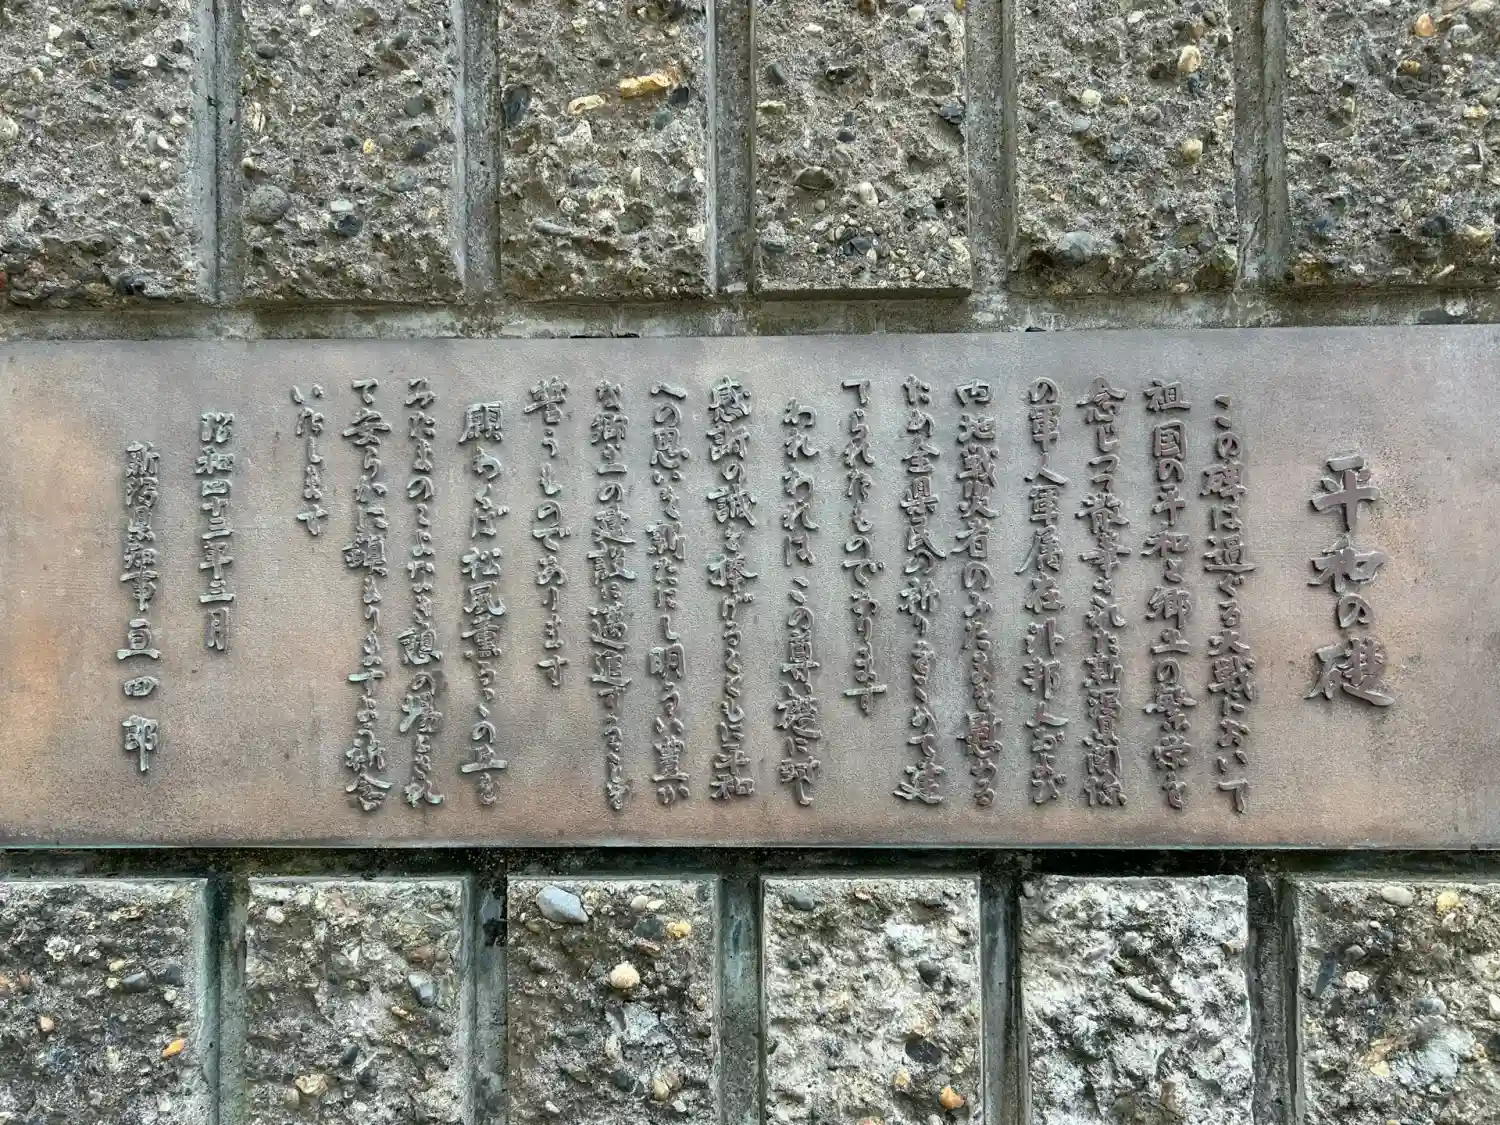 平和の礎
この碑は過ぐる大戦において
祖国の平和と郷土の繁栄を
念じつつ散華された新潟県関係
の軍人軍属在外邦人および
内地戦災者のみたまを慰める
ため全県民の祈りをこめて建
てられたものであります
われわれは この尊い礎に対し
感謝の誠を捧げるとともに平和
への思いを新たにし明るい豊か
な郷土の建設に邁進することを
誓うものであります
願わくば 松風薫るこの丘を
みたまのとこしなき憩の場とされ
て安らかに鎮まりますよう祈念
いたします
昭和四十三年三月
新潟県知事 亘 四 郎